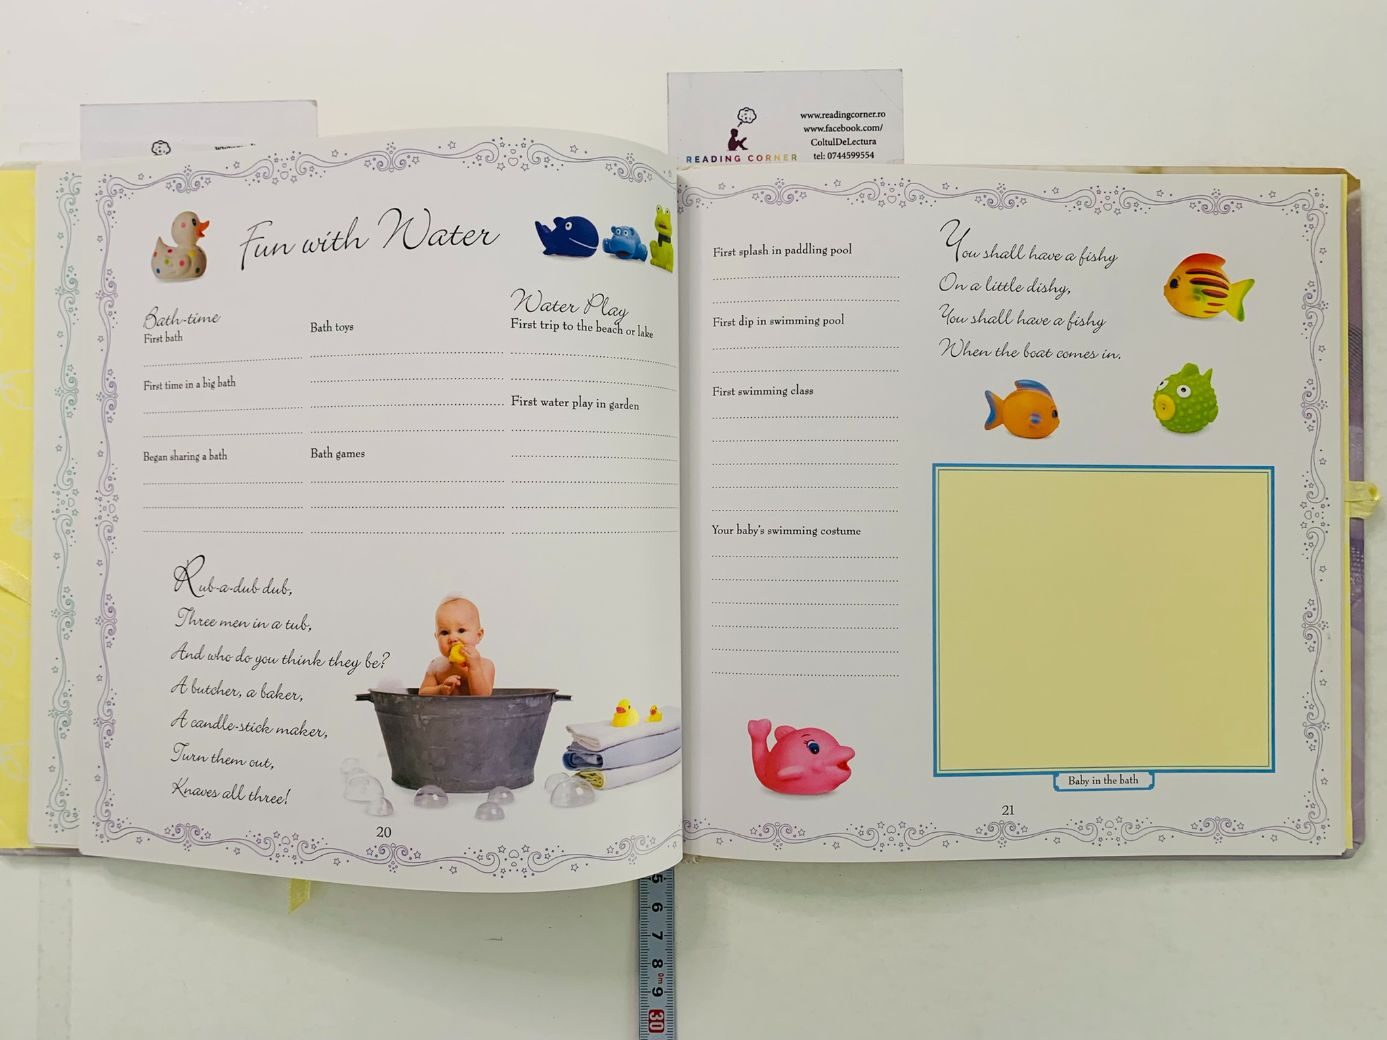 www.readingcorner.ro
www.facebook.com/
ColtulDeLectura
tel: 0744599554
READING CORNER
Fun with Water
Bath-time
First bath
First time in a big bath
Began sharing a bath
Bath toys
Bath games
Water Play
First trip to the beach or lake
First water play in garden
Rub-a-dub dub,
Three men in a tub,
And who do you think they be?
A butcher, a baker,
A candle-stick maker,
Turn them out,
Knaves all three!
20
First splash in paddling pool
First dip in swimming pool
First swimming class
Your baby's swimming costume
You shall have a fishy
On a little dishy,
You shall have a fishy
When the boat comes in.
Baby in the bath
21
5
6
7
8
0m
9
30